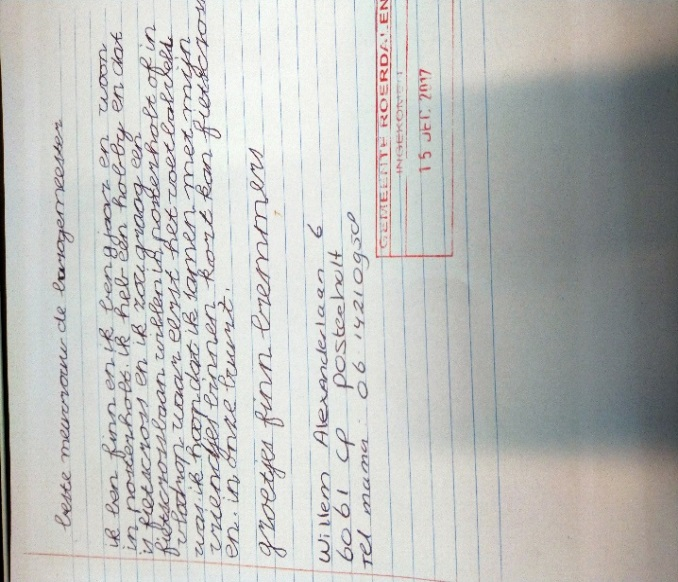 beste meurouw de borgemeester
ik ben finn en ik ben 9 jaar en woon
in posterholt. ik heb een hobby en dat
is fietscross en ik zou graag een
fietscrossbaan willen in posterholt of in
vlodrop waar eerst het voetbalveld
was ik hoop dat ik samen met mijn
vriendjes binnen kort kan fietscross
en in onze buurt.
groetjes finn bremmers
Willem Alexanderlaan 6
6061 CP posterholt
tel mama: 06 14210950
GEMEENTE ROERDALEN
INGEKOMEN
15 SEP. 2017